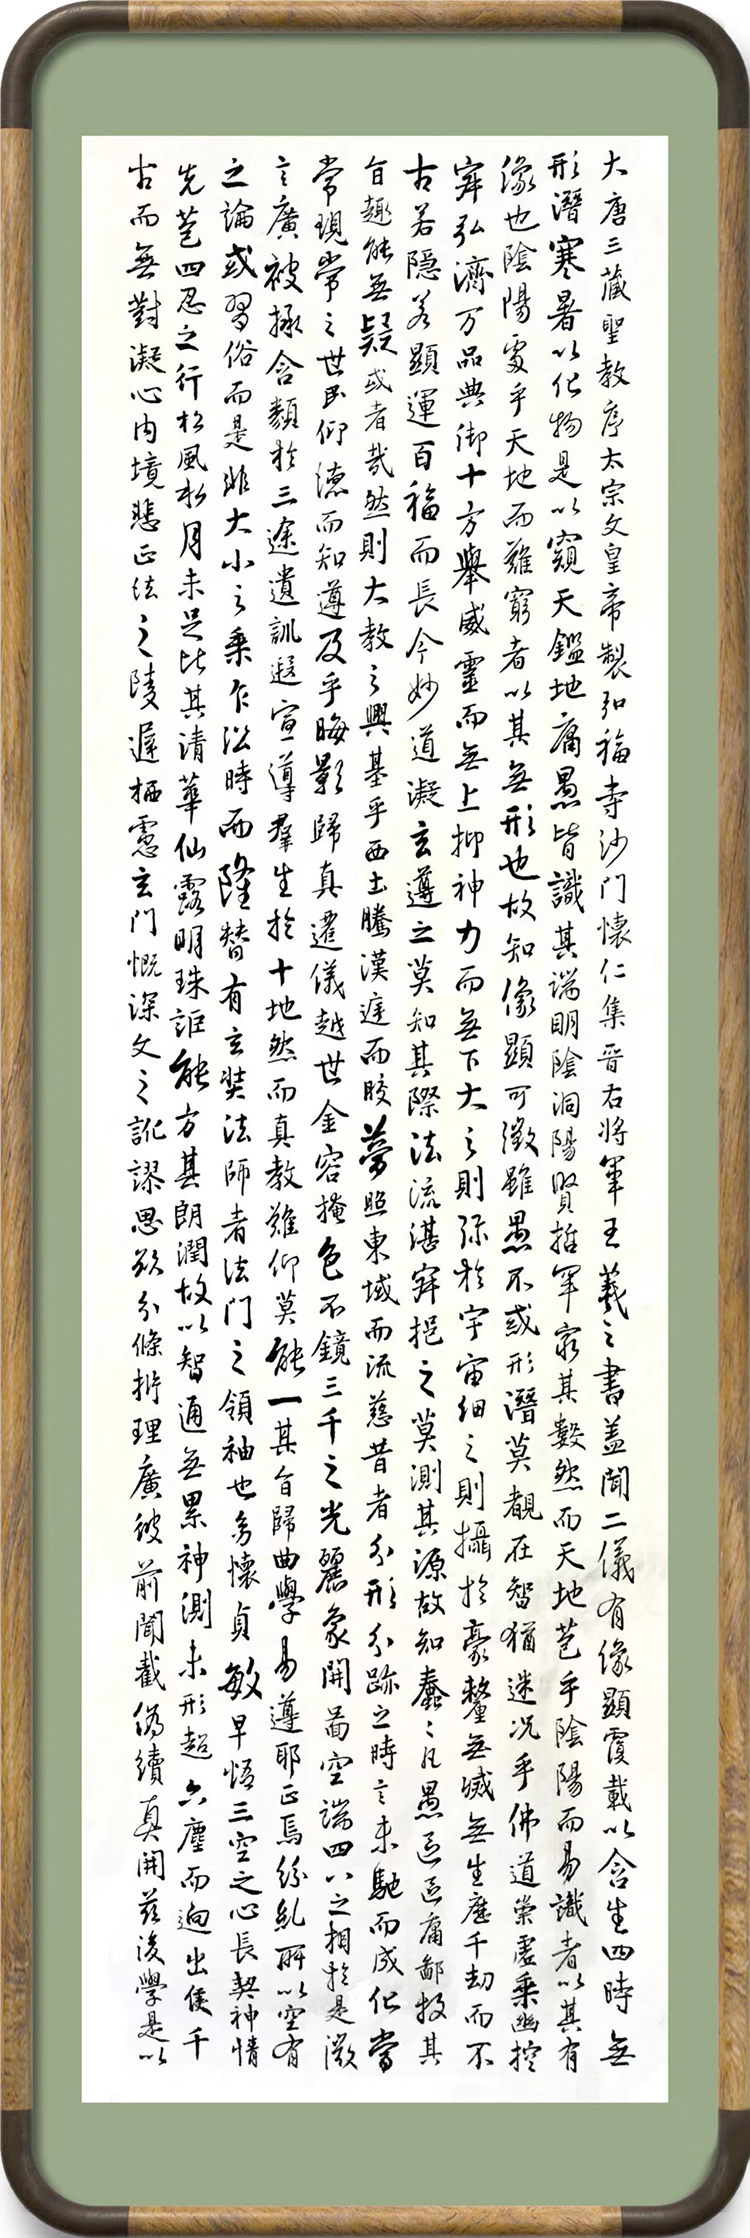 大唐三藏聖教序太宗文皇帝製弘福寺沙門懷仁集晉右將軍王羲之書蓋聞二儀有像顯覆載以含生四時無
形潛寒暑以化物是以窺天鑑地庸愚皆識其端明陰洞陽賢哲罕窮其數然而天地苞乎陰陽而易識者以其有
像也陰陽處乎天地而難窮者以其無形也故知像顯可徵雖愚不惑形潛莫覩在智猶迷況乎佛道崇虛乘幽控
寂弘濟万品典御十方舉威靈而無上抑神力而無下大之則彌於宇宙細之則攝於豪釐無滅無生歷千劫而不
古若隱若顯運百福而長今妙道凝玄遵之莫知其際法流湛寂挹之莫測其源故知蠢〻凡愚區區庸鄙投其
旨趣能無疑或者哉然則大教之興基乎西土騰漢庭而皎夢照東域而流慈昔者分形分跡之時言未馳而成化當
常現常之世民仰德而知遵及乎晦影歸真遷儀越世金容掩色不鏡三千之光麗象開圖空端四八之相於是微
言廣被拯含類於三途遺訓遐宣導群生於十地然而真教難仰莫能一其旨歸曲學易遵耶正焉紛糺所以空有
之論或習俗而是非大小之乘乍沿時而隆替有玄奘法師者法門之領袖也幼懷貞敏早悟三空之心長契神情
先苞四忍之行松風水月未足比其清華仙露明珠詎能方其朗潤故以智通無累神測未形超六塵而迥出隻千
古而無對凝心內境悲正法之陵遲栖慮玄門慨深文之訛謬思欲分條析理廣彼前聞截偽續真開茲後學是以